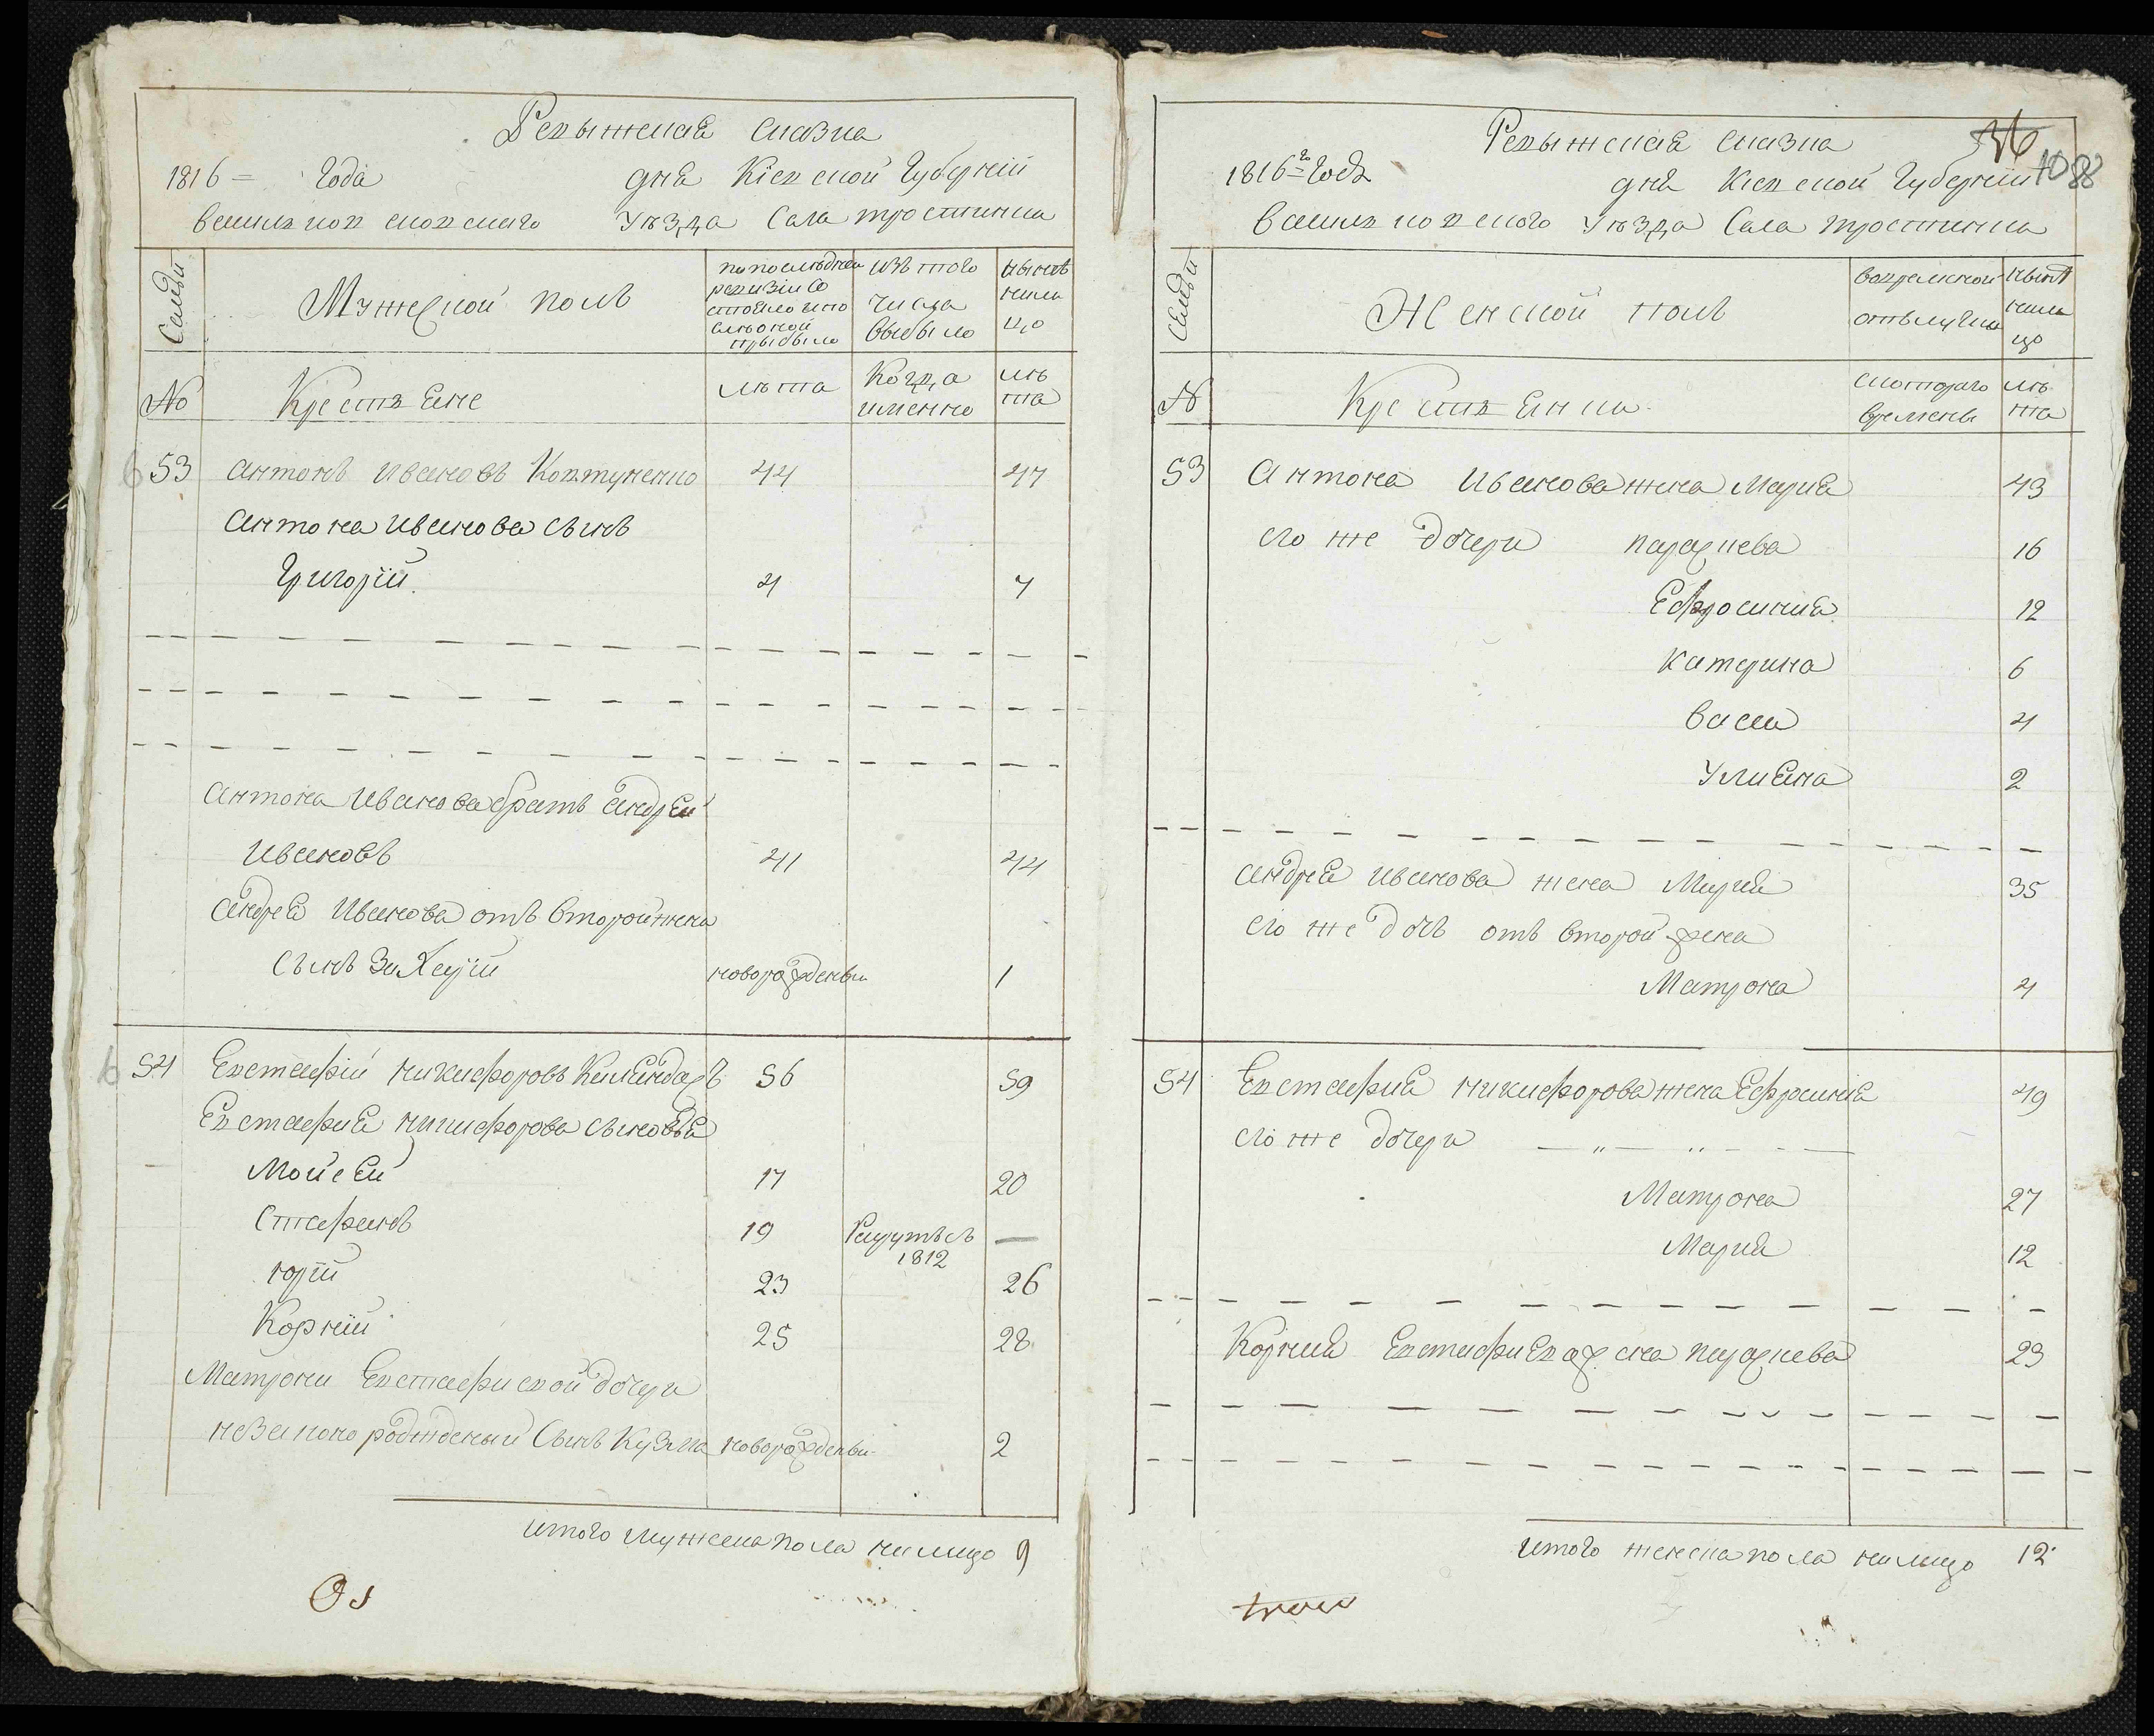 Ревыжская сказка
1816 = года дня Кіевской Губерніи
васильковского уѣзда села тростинка
Семьи
Мужеской полъ
по последней ревизіи состояло и после оной прыбыло
изъ того числа выбыло
ныне на лицо
№
Крестьяне
лѣта
Когда именно
лѣта
53 антонъ ивановъ Ковтуненко 44 47
антона иванова сынъ
Григорій 4 7
антона иванова братъ андрей
ивановъ 41 44
андрея иванова отъ второй жены
сынъ Захарій новорожденый 1
54 Евстафій никифоровъ 56 59
Евстафия никифорова сыновья
Мойсей 17 20
Стефанъ 19 Рекрутъ съ 1812 —
юрій 23 26
Корній 25 28
Матрони Евстафиевой дочери
незаконо рожденый сынъ Кузма новорожденый 2
итого мужеска пола на лицо 9
Ревыжская сказка
36
1816го года дня Кіевской Губерніи
1088
васильковского уѣзда села тростинка
Семьи
Женской полъ
во времяной отълучки
ныне на лицо
№
Крестьянки
с которого времены
лѣта
53 антона иванова жена Мария 43
его же дочери параскева 16
Ефросиния 12
Катерина 6
васса 4
улияна 2
андрея иванова жена Мария 35
его же дочь отъ второй жены
Матрона 4
54 Евстафия никифорова жена Ефросиния 49
его же дочери
Матрона 27
Мария 12
Корния Евстафиева жена параскева 23
итого женска пола на лицо 12